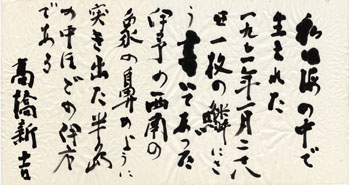 私は海の中で
生まれた
一九〇一年一月二十八
日一枚の鱗にそ
う書いてあった
伊予の西南の
象の鼻のように
突き出た半島
の中ほどの伊方
である
高橋新吉